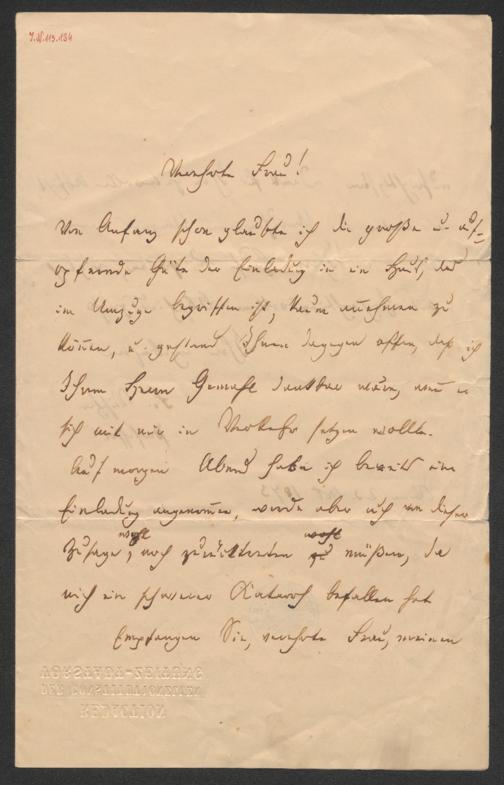 J.N.113.184
Verehrte Frau!
Von Anfang schon glaubte ich die große u. auf-
opfernde Güte der Einladung in ein Haus, das
im Umzuge begriffen ist, kaum annehmen zu
können, u. gestand Ihnen dagegen offen, daß ich
Ihrem Herrn Gemahl dankbar wäre, wenn er
sich mit mir in Verkehr setzen wollte.
Auf morgen Abend habe ich bereits eine
Einladung angenommen, werde aber auch von dieser
Zusage, wohl noch zurücktreten wohl müßen, da
mich ein schwerer Katarrh befallen hat
Empfangen Sie, verehrte Frau, meinen
VORSTADT-ZEITUNG
DER CONSTITUTIONELLEN
REDACTION